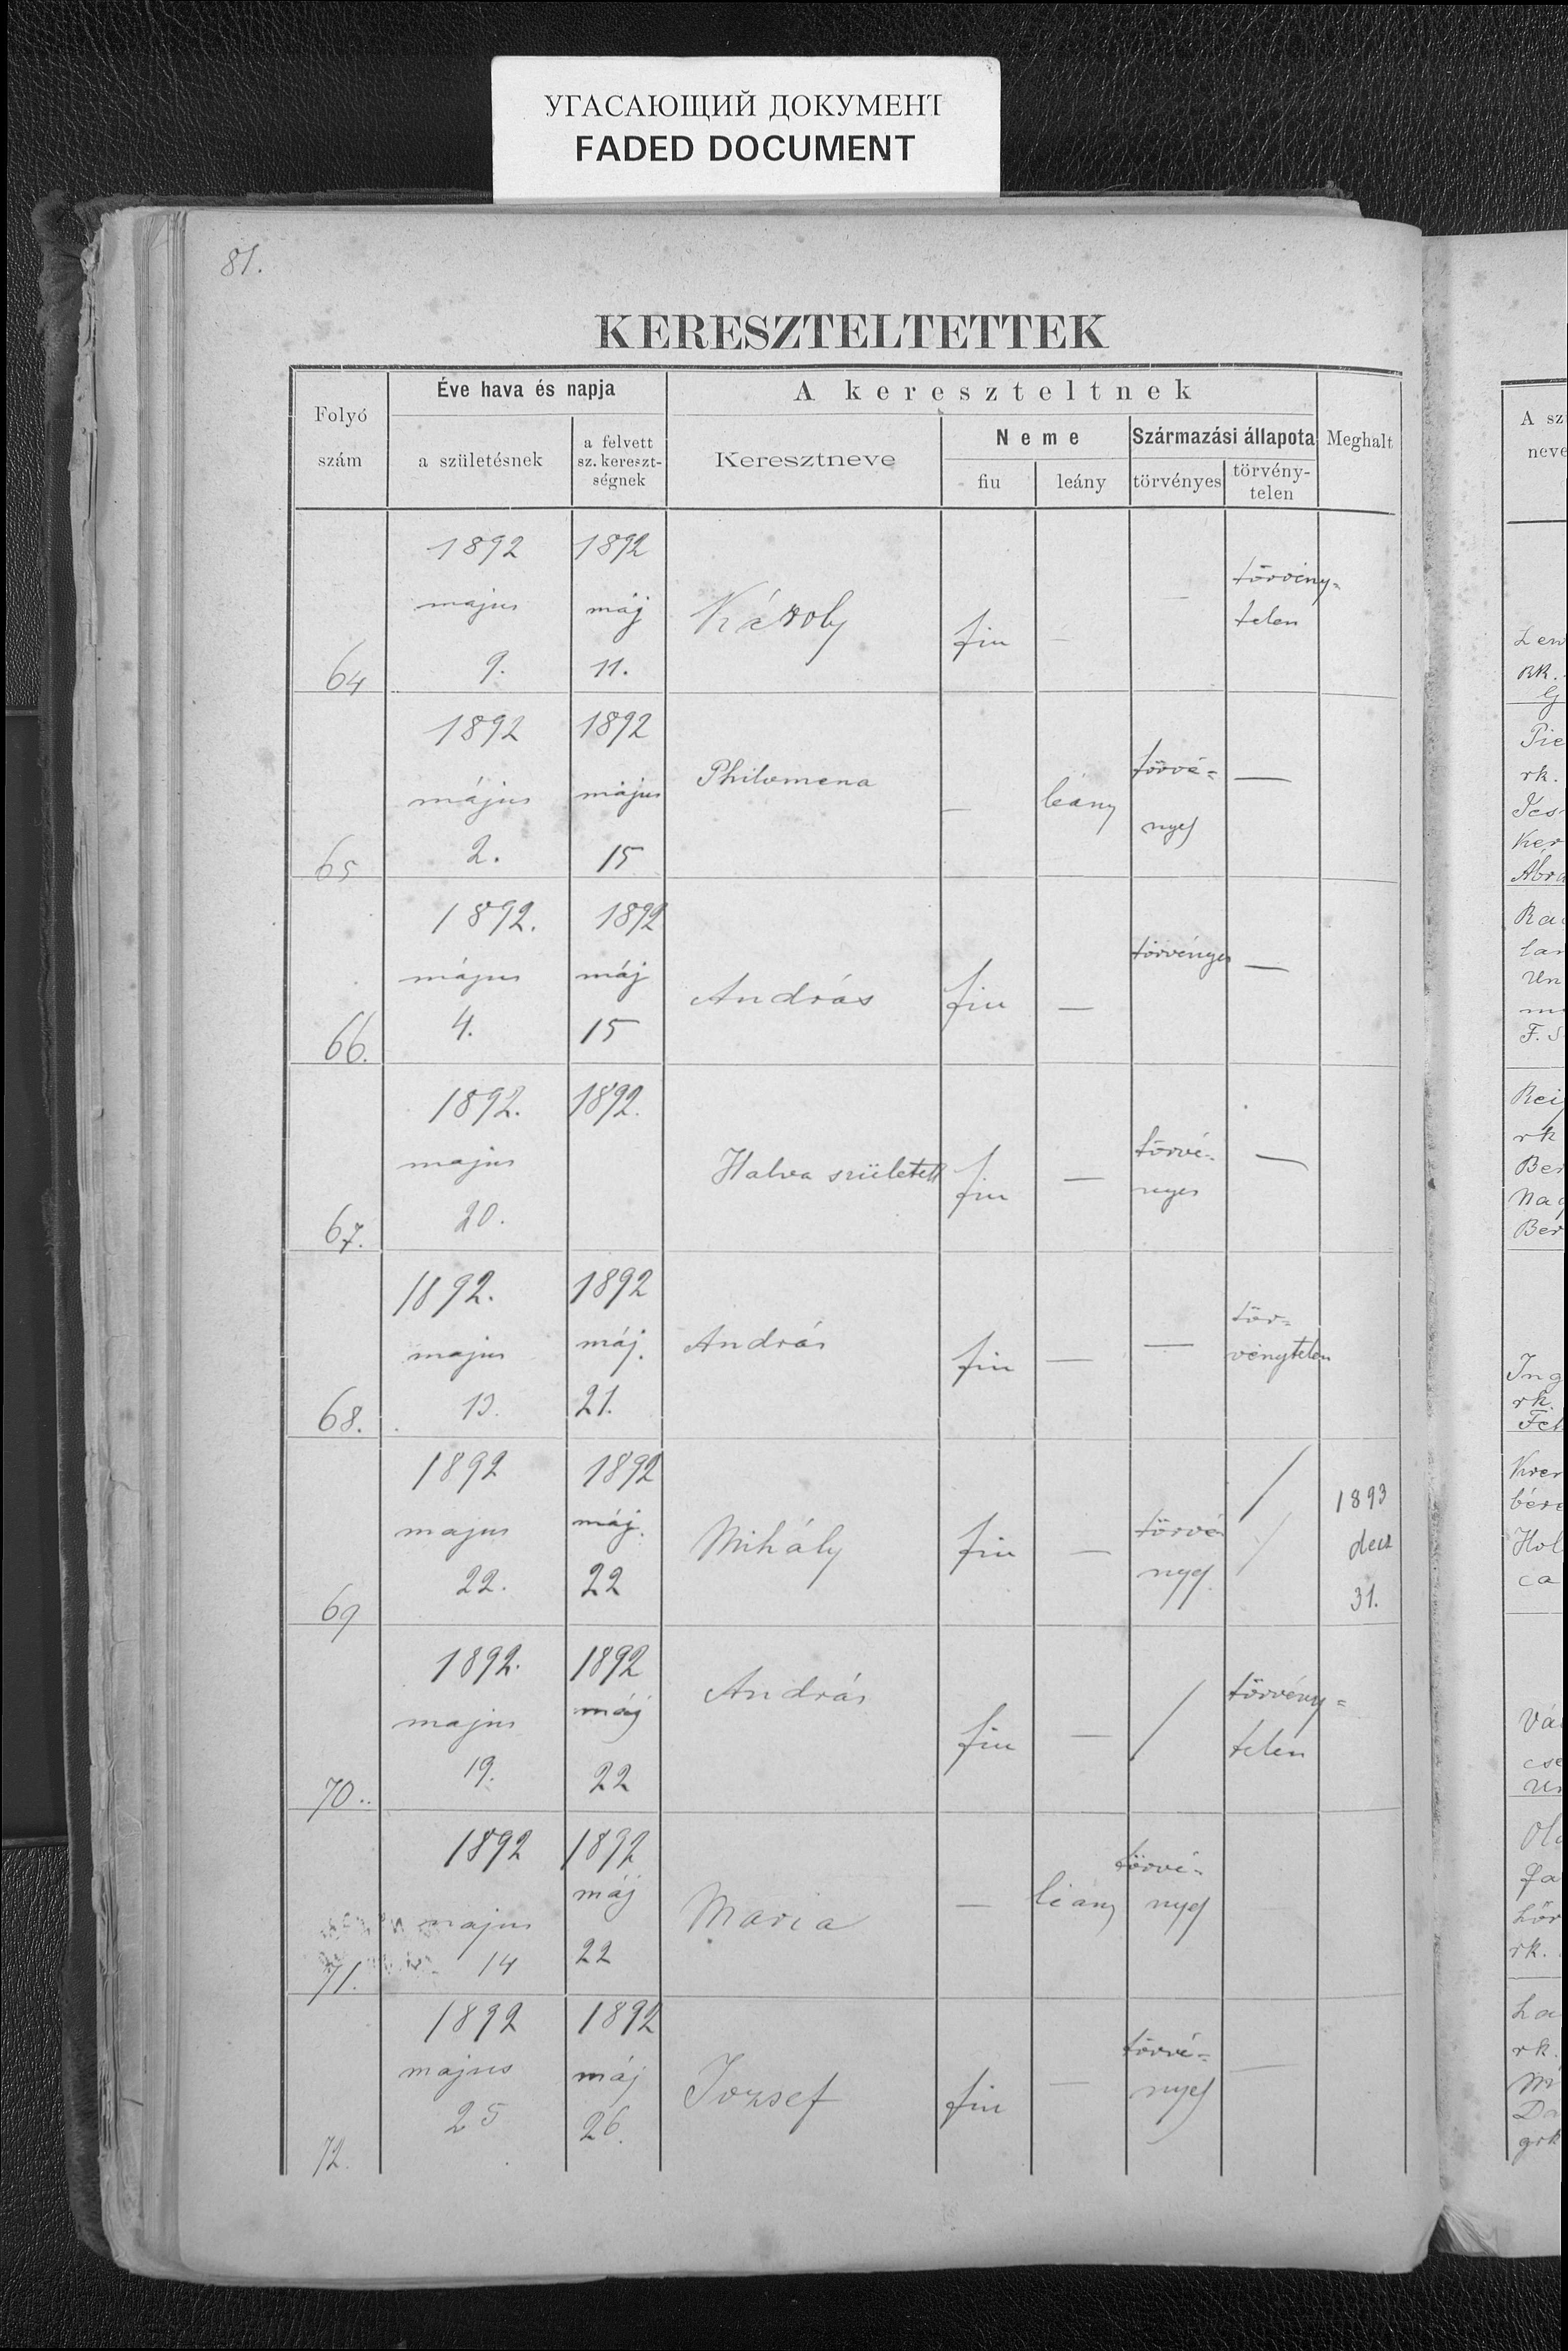 УГАСАЮЩИЙ ДОКУМЕНТ
FADED DOCUMENT
81.
KERESZTELTETTEK
Folyó szám
Éve hava és napja
a születésnek
a felvett sz. kereszt-ségnek
A kereszteltnek
Keresztneve
Neme
fiu
leány
Származási állapota
törvényes
törvény-telen
Meghalt
64
1892 majus 9.
1892 máj 11.
Károly
fiu
—
—
törvény=
telen
65
1892 május 2.
1892 május 15
Philomena
—
leány
törvé=
nyes
—
66.
1892. május 4.
1892 máj 15
András
fiu
—
törvényes
—
67.
1892. majus 20.
1892.
Halva született
fiu
—
törvé-
nyes
—
68.
1892. majus 13.
1892 máj. 21.
András
fiu
—
—
tör=
vénytelen
69
1892 majus 22.
1892 máj. 22
Mihály
fiu
—
törvé
nyes
/
1893
31.
70..
1892. majus 19.
1892 máj 22
András
fiu
—
/
törvény=
telen
71.
1892 majus 14
1892 máj 22
Maria
—
leany
törvé=
nyes
72.
1892 majus 25
1892 máj 26.
Jozsef
fiu
—
törvé=
nyes
—
A sz
neve
Len
RK.
Pie
rk.
Ker
Ábra
Ra
lan
Un
F. S
Rei
rk
Ber
Nag
Ber
Ing
rk.
Feh
bére
Hol
ca
Vá
cse
fa
rk.
La
rk.
Da
grk